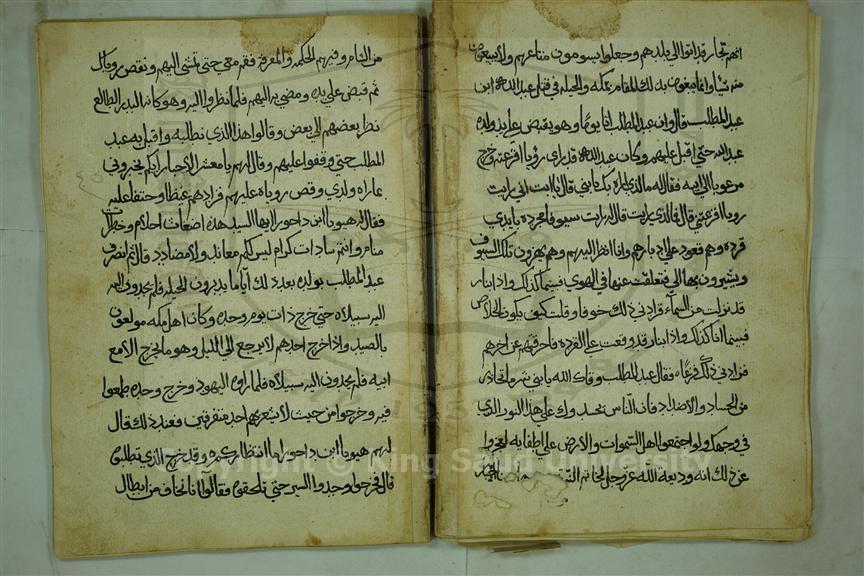 انهم تجار قد اتوا الى بلدهم وجعلوا يسومون متاعهم ولا يبيعون
منه شيا وانما يبغون بذلك المقام بمكه والحيله في قتل عبد الله ابن
عبد المطلب قال وان عبد المطلب اتا يوما وهو يقبض على يد ولده
عبد الله حتى اقبل عليهم وكان عبد الله قد راى رؤيا افزعته فخرج
مرعوبا الى ابيه فقال له مالذي بك يا بني قال يا ابت اني رايت
رويا افزعتني قال فما الذي رايت قال رايت سيوفا مجرده بايدي
قرده وهم قعود على ادبارهم وانا انظر اليهم وهم يهزون تلك السيوف
ويشيرون بها الي فتعلقت عنها في الهوى فبينما كذلك واذا بنار
قد نزلت من السماء فزادني ذلك خوفا وقلت كيف يكون الخلاص
فبينما انا كذلك واذا بنار قد وقعت على القرده فاحرقتهم عن اخرهم
فزادني ذلك فزعا فقال عبد المطلب وقاك الله يا بني شر ما تحاذر
من الحساد والاضداد فان الناس يحسدوك على هذا النور الذي
في وجهك ولو اجتمعوا اهل السموات والارض على اطفايه لعجزوا
عن ذلك انه وديعة الله عز وجل لخاتم
من الشام وفيهم الحكمه والمعرفه فقم معي حتى نمشي اليهم ونقص روياك
ثم قبض على يده ومضى به اليهم فلما نظروا اليه وهو كانه البدر الطالع
نظر بعضهم الى بعض وقالوا هذا الذي نطلبه واقبل به عبد
المطلب حتى وقفوا عليهم وقال لهم يا معشر الاحبار اتيتكم نخبركم
بما راه ولدي وقص روياه عليهم فزادهم غيظا وحنقا عليه
فقال له هيوبا ابن داحورا ايها السيد هذه اضغاث احلام وخطرات
منام وانتم سادات كرام ليس لكم معاند ولا مضادد قال ثم انصرف
عبد المطلب بولده بعد ذلك اياما يدبرون الحيله فلم يجدون اليه
اليه سبيلا حتى خرج ذات يوم وحده وكان اهل مكه مولعون
بالصيد واذا خرج احدهم لا يرجع الى الليل وهو ما يخرج الا مع
ابيه فلم يجدون اليه سبيلا فلما راوه اليهود وخرج وحده طمعوا
فيه وخرجوا من حيث لا يشعر بهم احد متفرقين فعند ذلك قال
لهم هيوبا ابن داحورا ما انتظاركم وقد خرج الذي تطلبوه
قال فخرجوا وجدوا السير حتى تلحقوه فقالوا انا نخاف من ابطال
Copyright © King Saud University
1957